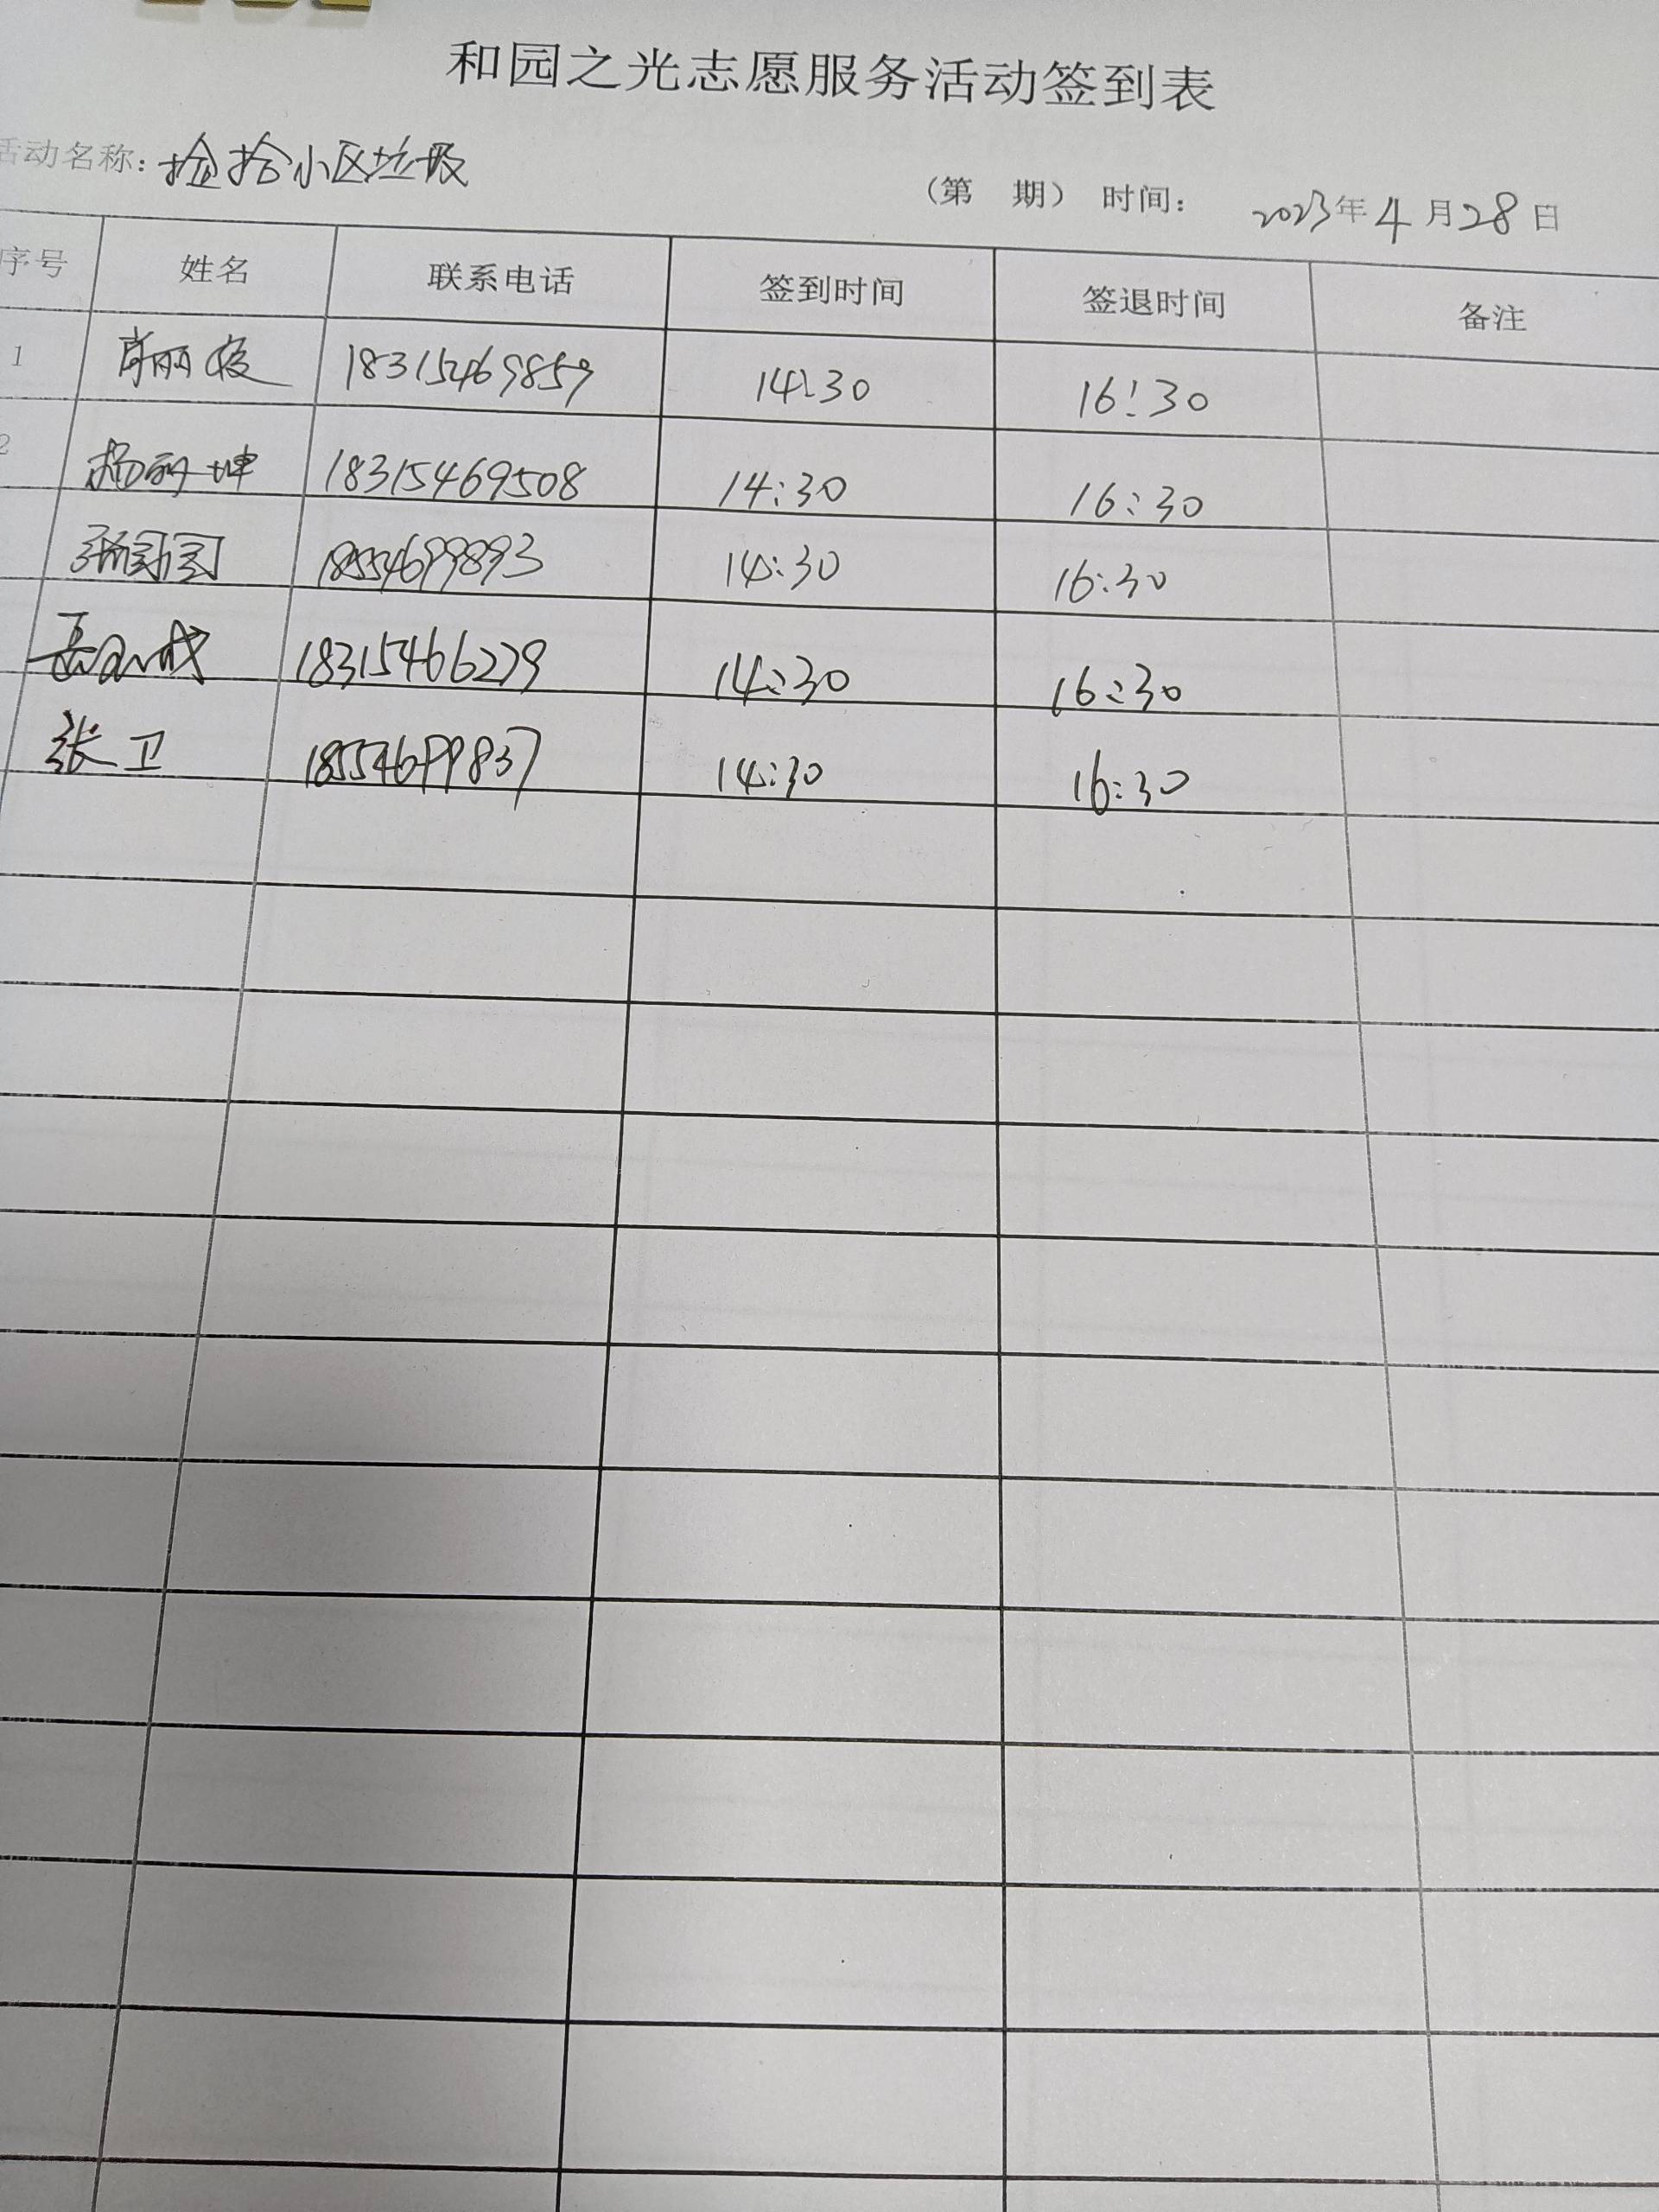 和园之光志愿服务活动签到表
活动名称：捡拾小区垃圾 （第 期） 时间： 2023年4月28日
序号 姓名 联系电话 签到时间 签退时间 备注
1 18315469859 14:30 16:30
2 杨丽坤 18315469508 14:30 16:30
18554699893 14:30 16:30
18315466279 14:30 16:30
张卫 18554699837 14:30 16:30